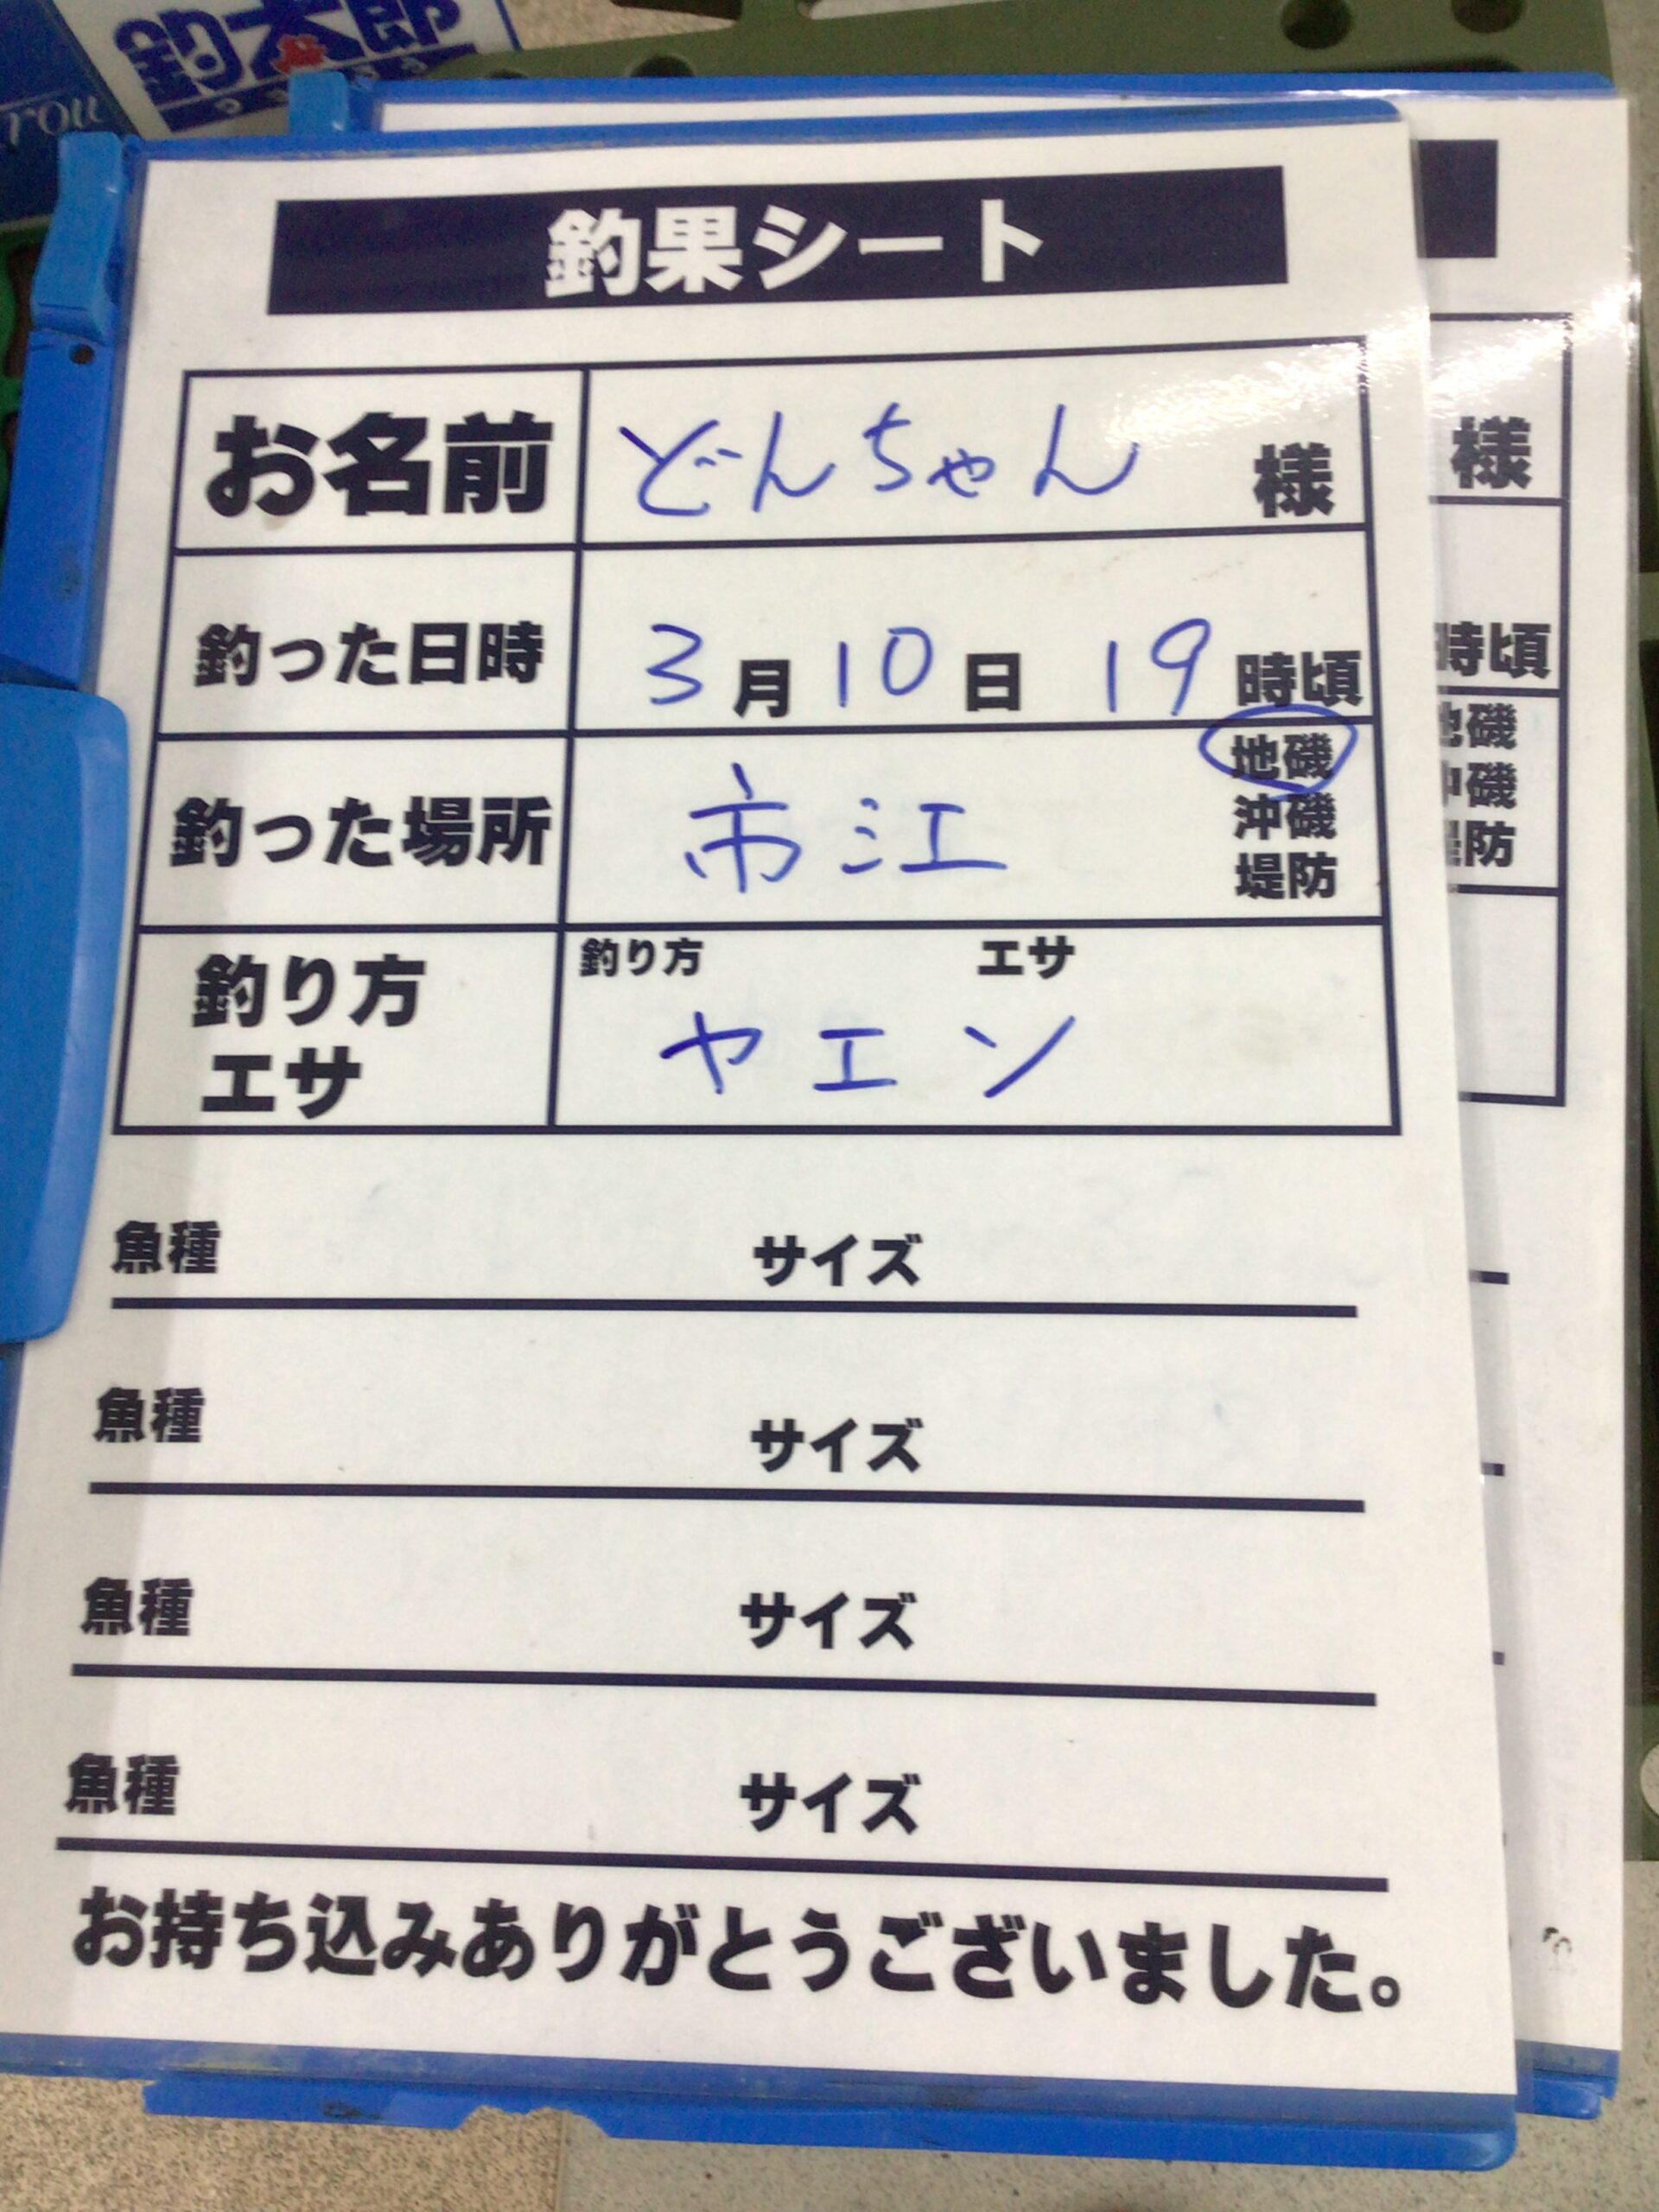 釣太郎
rou
釣果シート
お名前 どんちゃん 様
釣った日時 3月10日 19時頃
釣った場所 市江 地磯
沖磯
堤防
釣り方 エサ
釣り方
エサ
ヤエン
魚種 サイズ
魚種 サイズ
魚種 サイズ
魚種 サイズ
お持ち込みありがとうございました。
様
時頃
地磯
沖磯
堤防